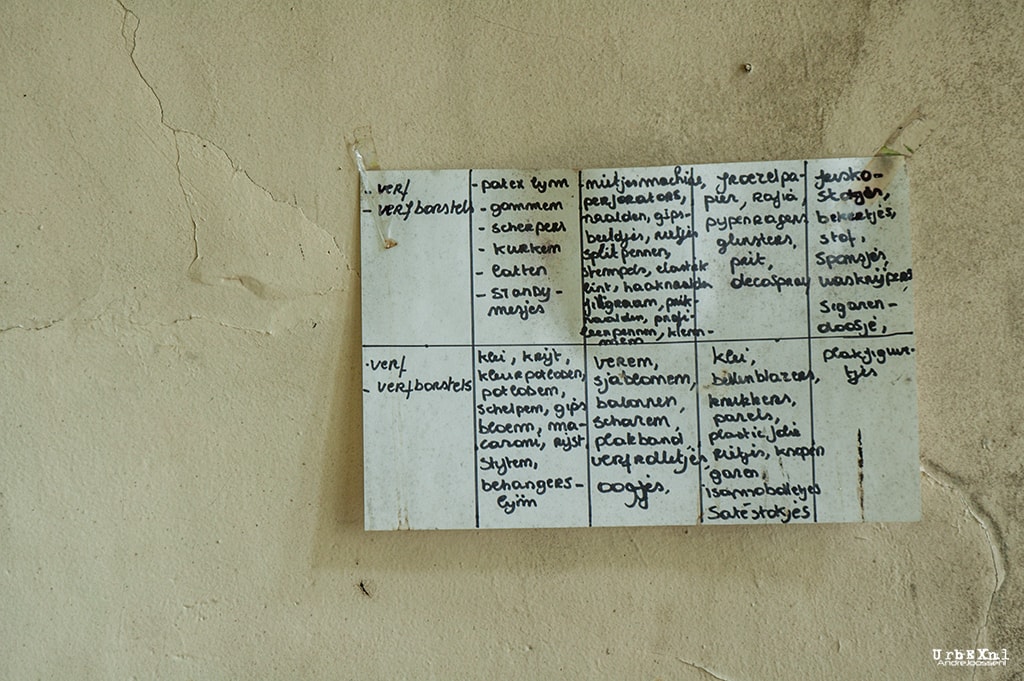 - verf
- verfborstels
- patex lijm
- gommen
- scherpers
- kurken
- latten
- standy-
mesjes
- nietjesmachine,
perforators,
naalden, gips-
beeldjes, rietjes
splitpennen,
stempels, elastiek
lint, haaknaalden
filigraam, prik-
naalden,
froezelpa-
pier, rafia,
pypenragers
glinsters,
prit,
decospray
stokjes,
bekertjes,
stof,
sponsjes,
wasknijpers
sigaren-
doosje,
- verf
- verfborstels
klei, krijt,
kleurpotloden,
potloden,
schelpen, gips
bloem, ma-
caroni, rijst,
stijfsel,
behangers-
lijm
veren,
sjablonen,
balonnen,
scharen,
plakband
verfrolletjes
oogjes,
klei,
bellenblazers,
knikkers,
parels,
plastic folie
rietjes, knopen
garen,
isomobolletjes
satéstokjes
plakfiguur-
tjes
UrbEXnl
AndreJoosse.nl